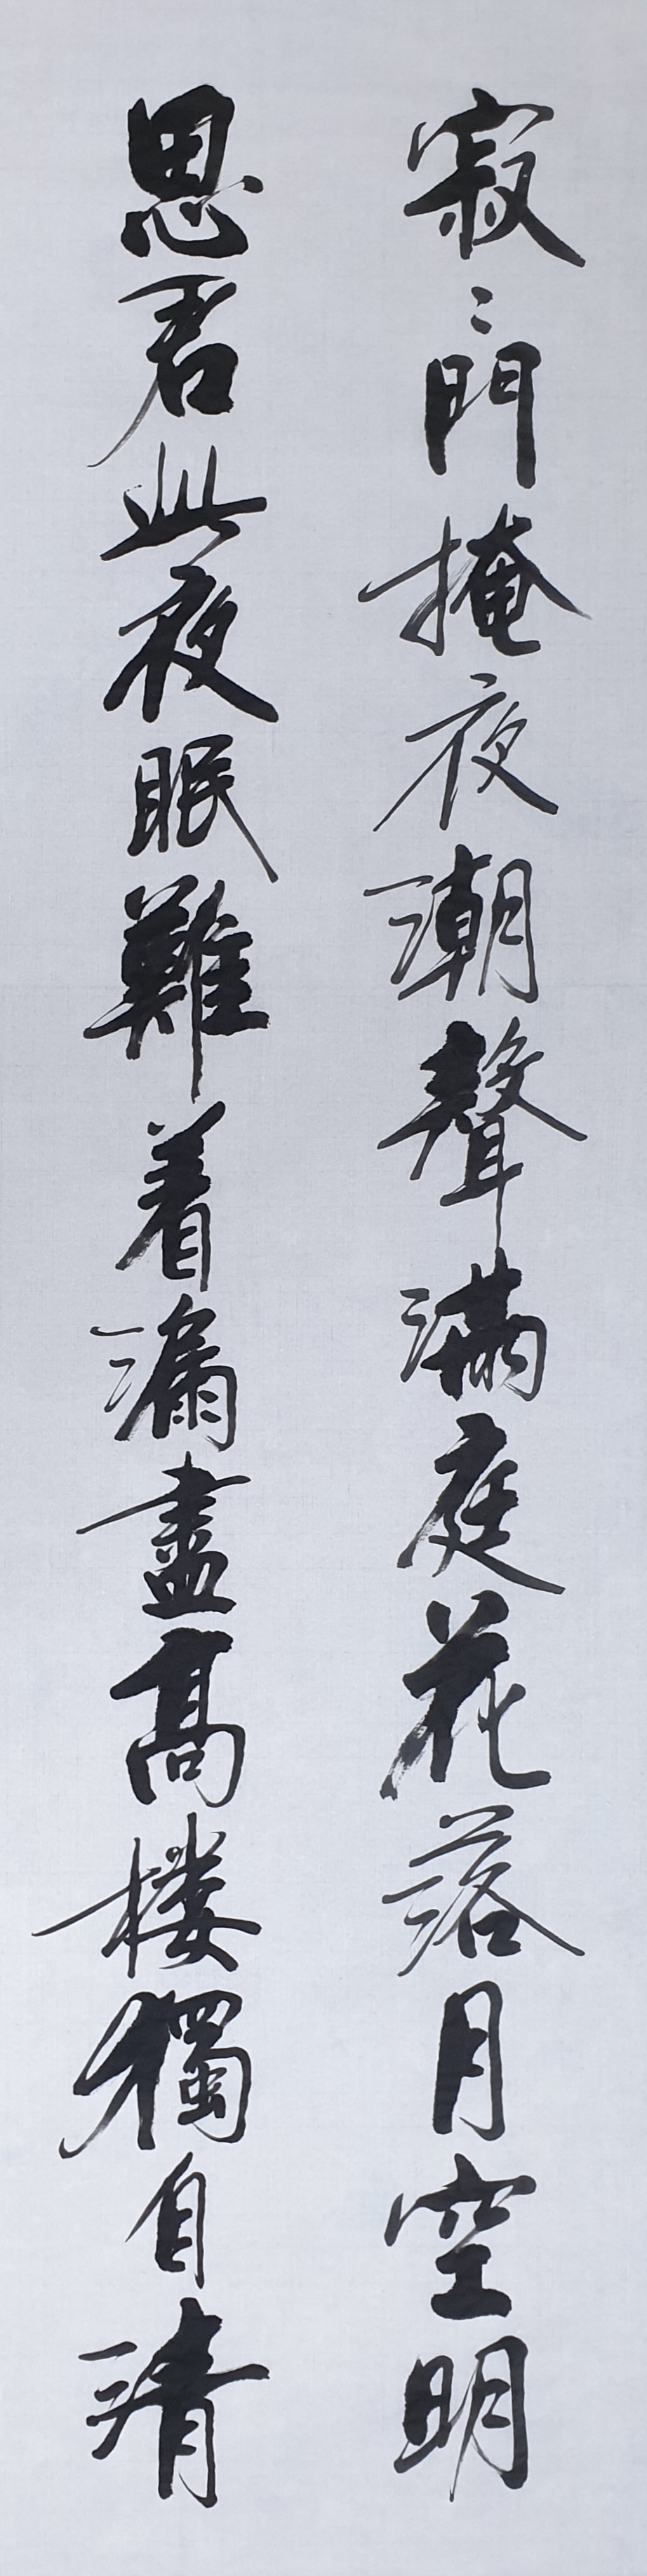 寂〻門掩夜潮聲滿庭花落月空明
思君此夜眠難着漏盡高楼獨自清